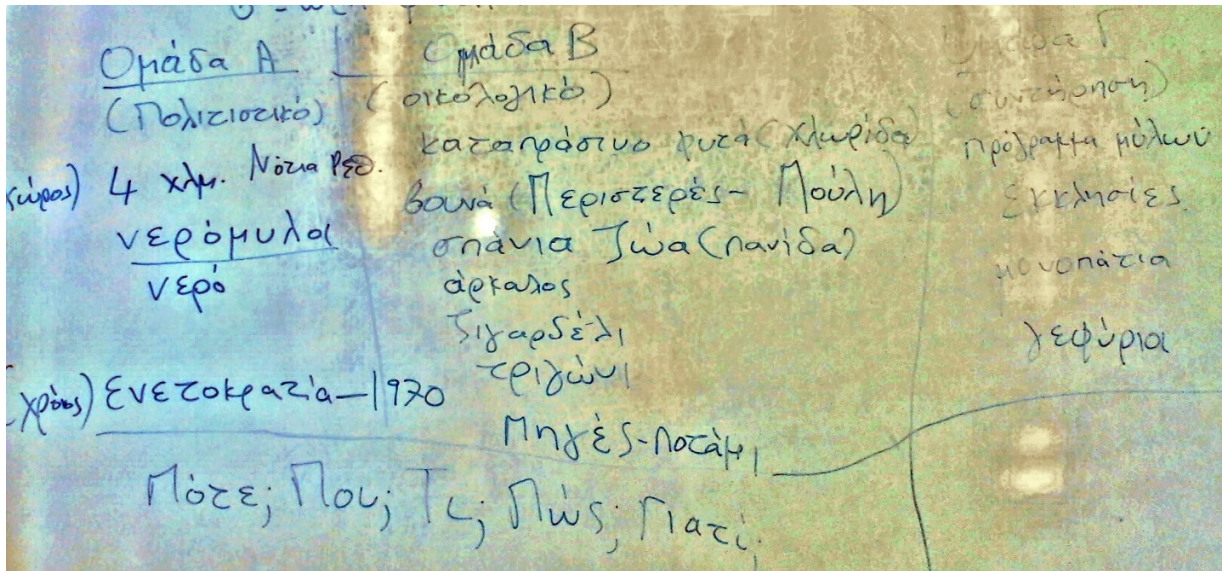 Ομάδα Α
(Πολιτιστικό)
χώρος) 4 χλμ. Νότια Ρεθ.
νερόμυλοι
νερό
χρόνος) Ενετοκρατία – 1970
Ομάδα Β
(οικολογικό)
καταπράσινο φυτά (χλωρίδα)
βουνά (Περιστερές - Πούλη)
σπάνια ζώα (πανίδα)
άρκαλος
ζιγαρδέλι
τριγώνι
Πηγές - ποτάμι
Ομάδα Γ
(συντήρηση)
πρόγραμμα μύλων
Εκκλησίες
μονοπάτια
γεφύρια
Πότε; Που; Τι; Πώς; Γιατί;